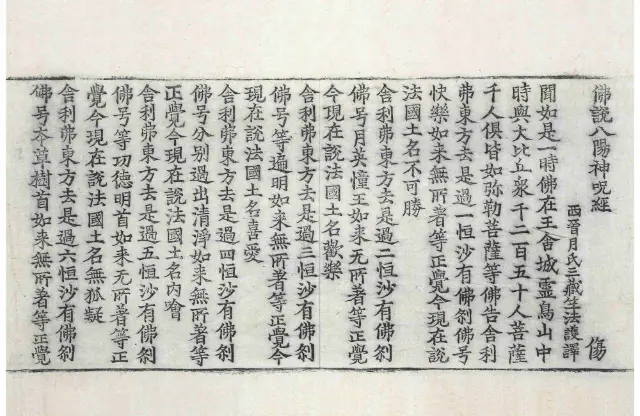 佛說八陽神呪經
西晉月氏三藏竺法護譯
傷
聞如是一時佛在王舍城靈鳥山中
時與大比丘衆千二百五十人菩薩
千人俱皆如弥勒菩薩等佛告舍利
弗東方去是過一恒沙有佛刹佛号
快樂如来無所著等正覺今現在說
法國土名不可勝
舍利弗東方去是過二恒沙有佛刹
佛号月英憧王如来无所著等正覺
今現在說法國土名歡樂
舍利弗東方去是過三恒沙有佛刹
佛号等遍明如来無所著等正覺今
現在說法國土名喜愛
舍利弗東方去是過四恒沙有佛刹
佛号分别過出清淨如来無所著等
正覺今現在說法國土名內
舍利弗東方去是過五恒沙有佛刹
佛号等功德明首如来无所著等正
覺今現在說法國土名無狐疑
舍利弗東方去是過六恒沙有佛刹
佛号本草樹首如来無所著等正覺